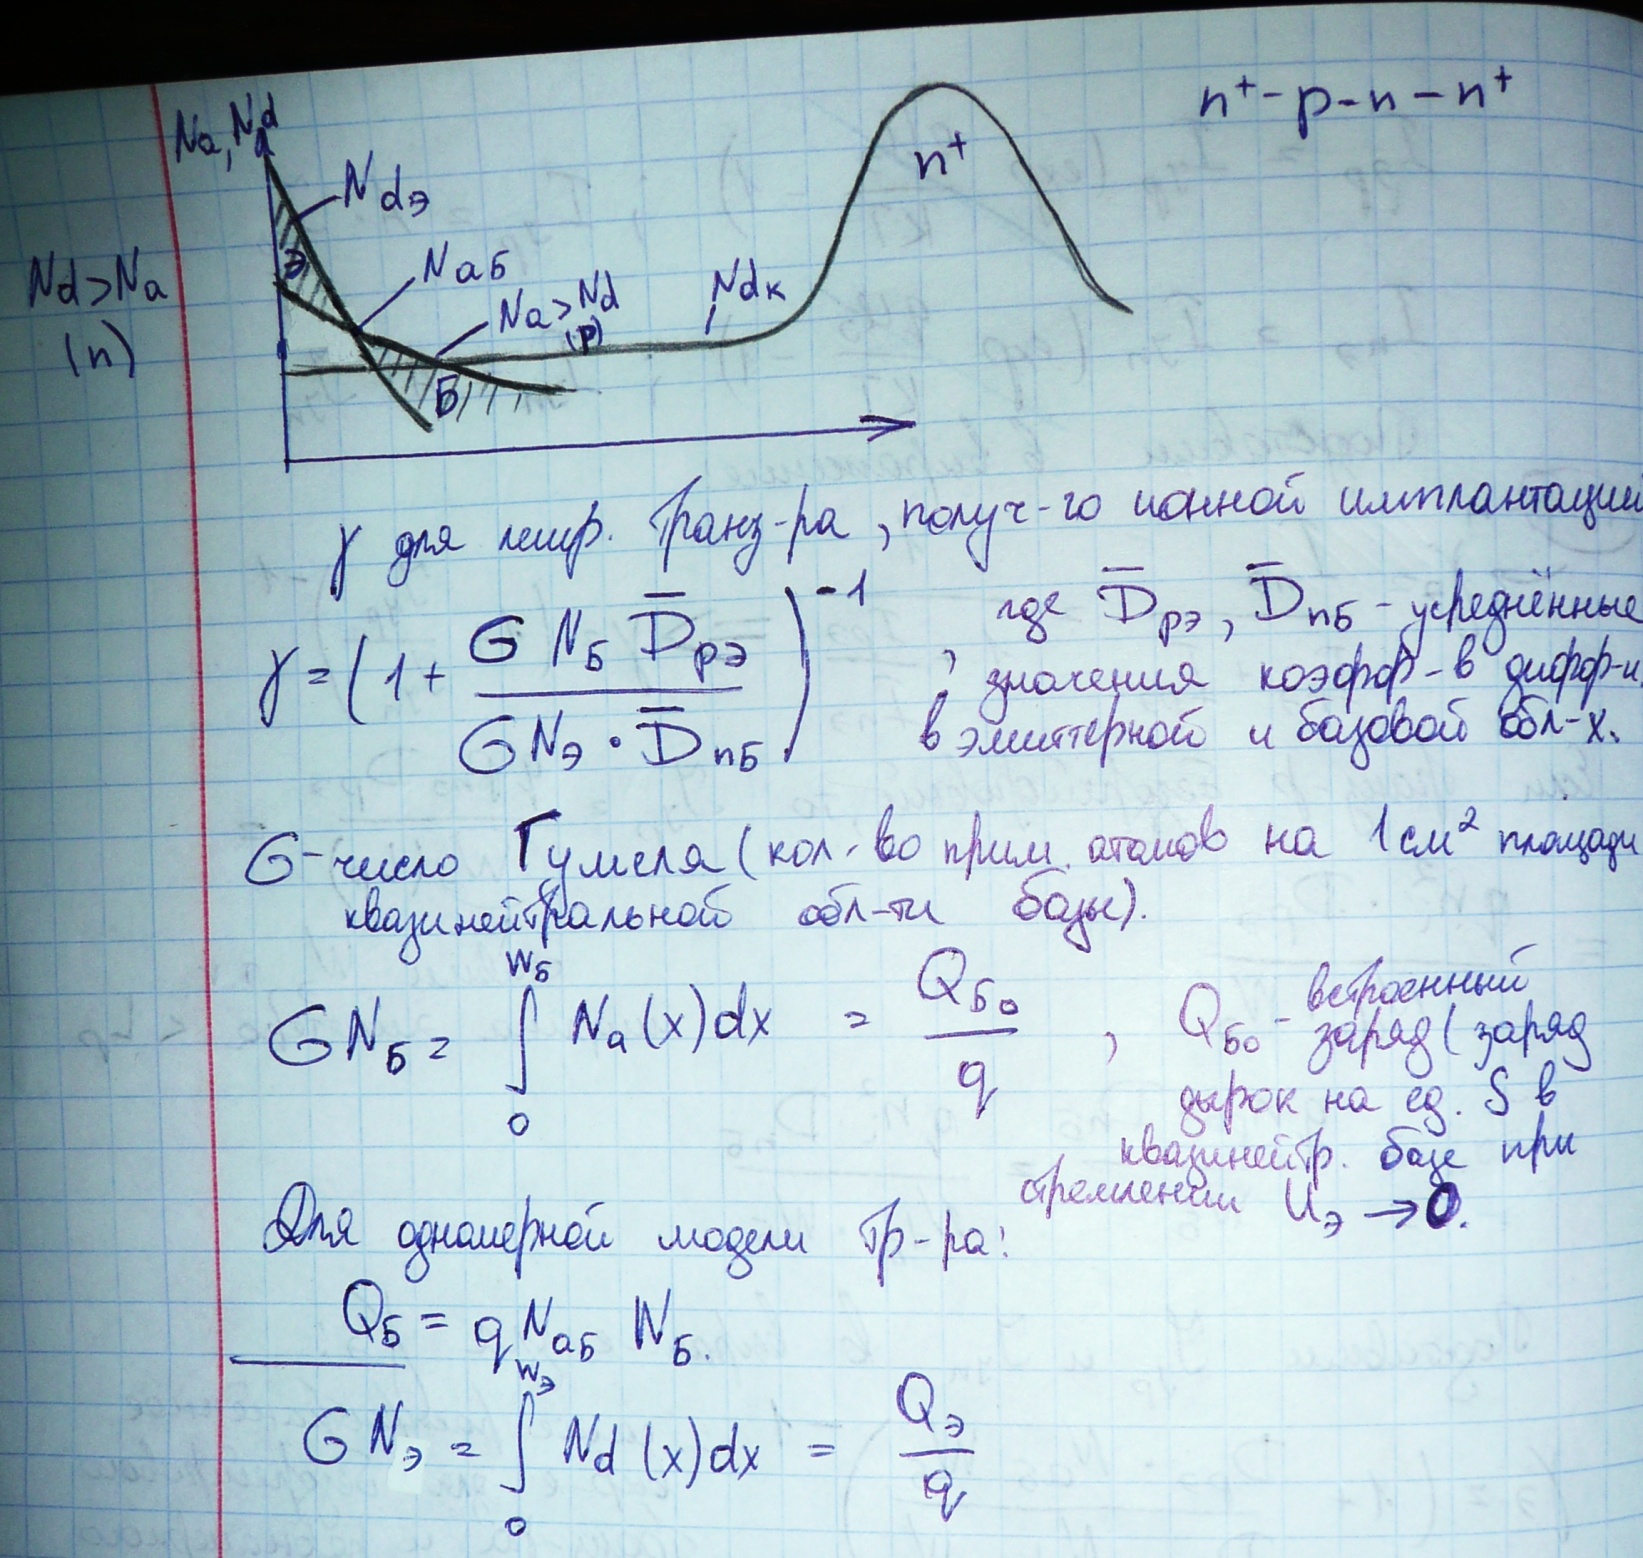 n⁺-p-n-n⁺
Na, Nd
n⁺
Ndэ
NaБ
Nd>Na
(n)
Э
Na>Nd
(p)
Ndк
Б
γ для интегр. транз-ра, получ-го ионной имплантации
γ = (1 + GNБ D̄pэ / GNэ · D̄nБ)⁻¹, где D̄pэ, D̄nБ - усреднённые
значения коэфф-в дифф-и
в эмиттерной и базовой обл-х.
G-число Гумеля (кол-во прим. атомов на 1 см² площади
квазинейтральной обл-ти базы).
GNБ = ∫₀^WБ Na(x)dx = QБ₀ / q, QБ₀ - встроенный
заряд (заряд
дырок на ед. S в
квазинейтр. базе при
стремлении Uэ → 0.
Для одномерной модели тр-ра:
QБ = qNaБ WБ.
GNэ = ∫₀^Wэ Nd(x)dx = Qэ / q